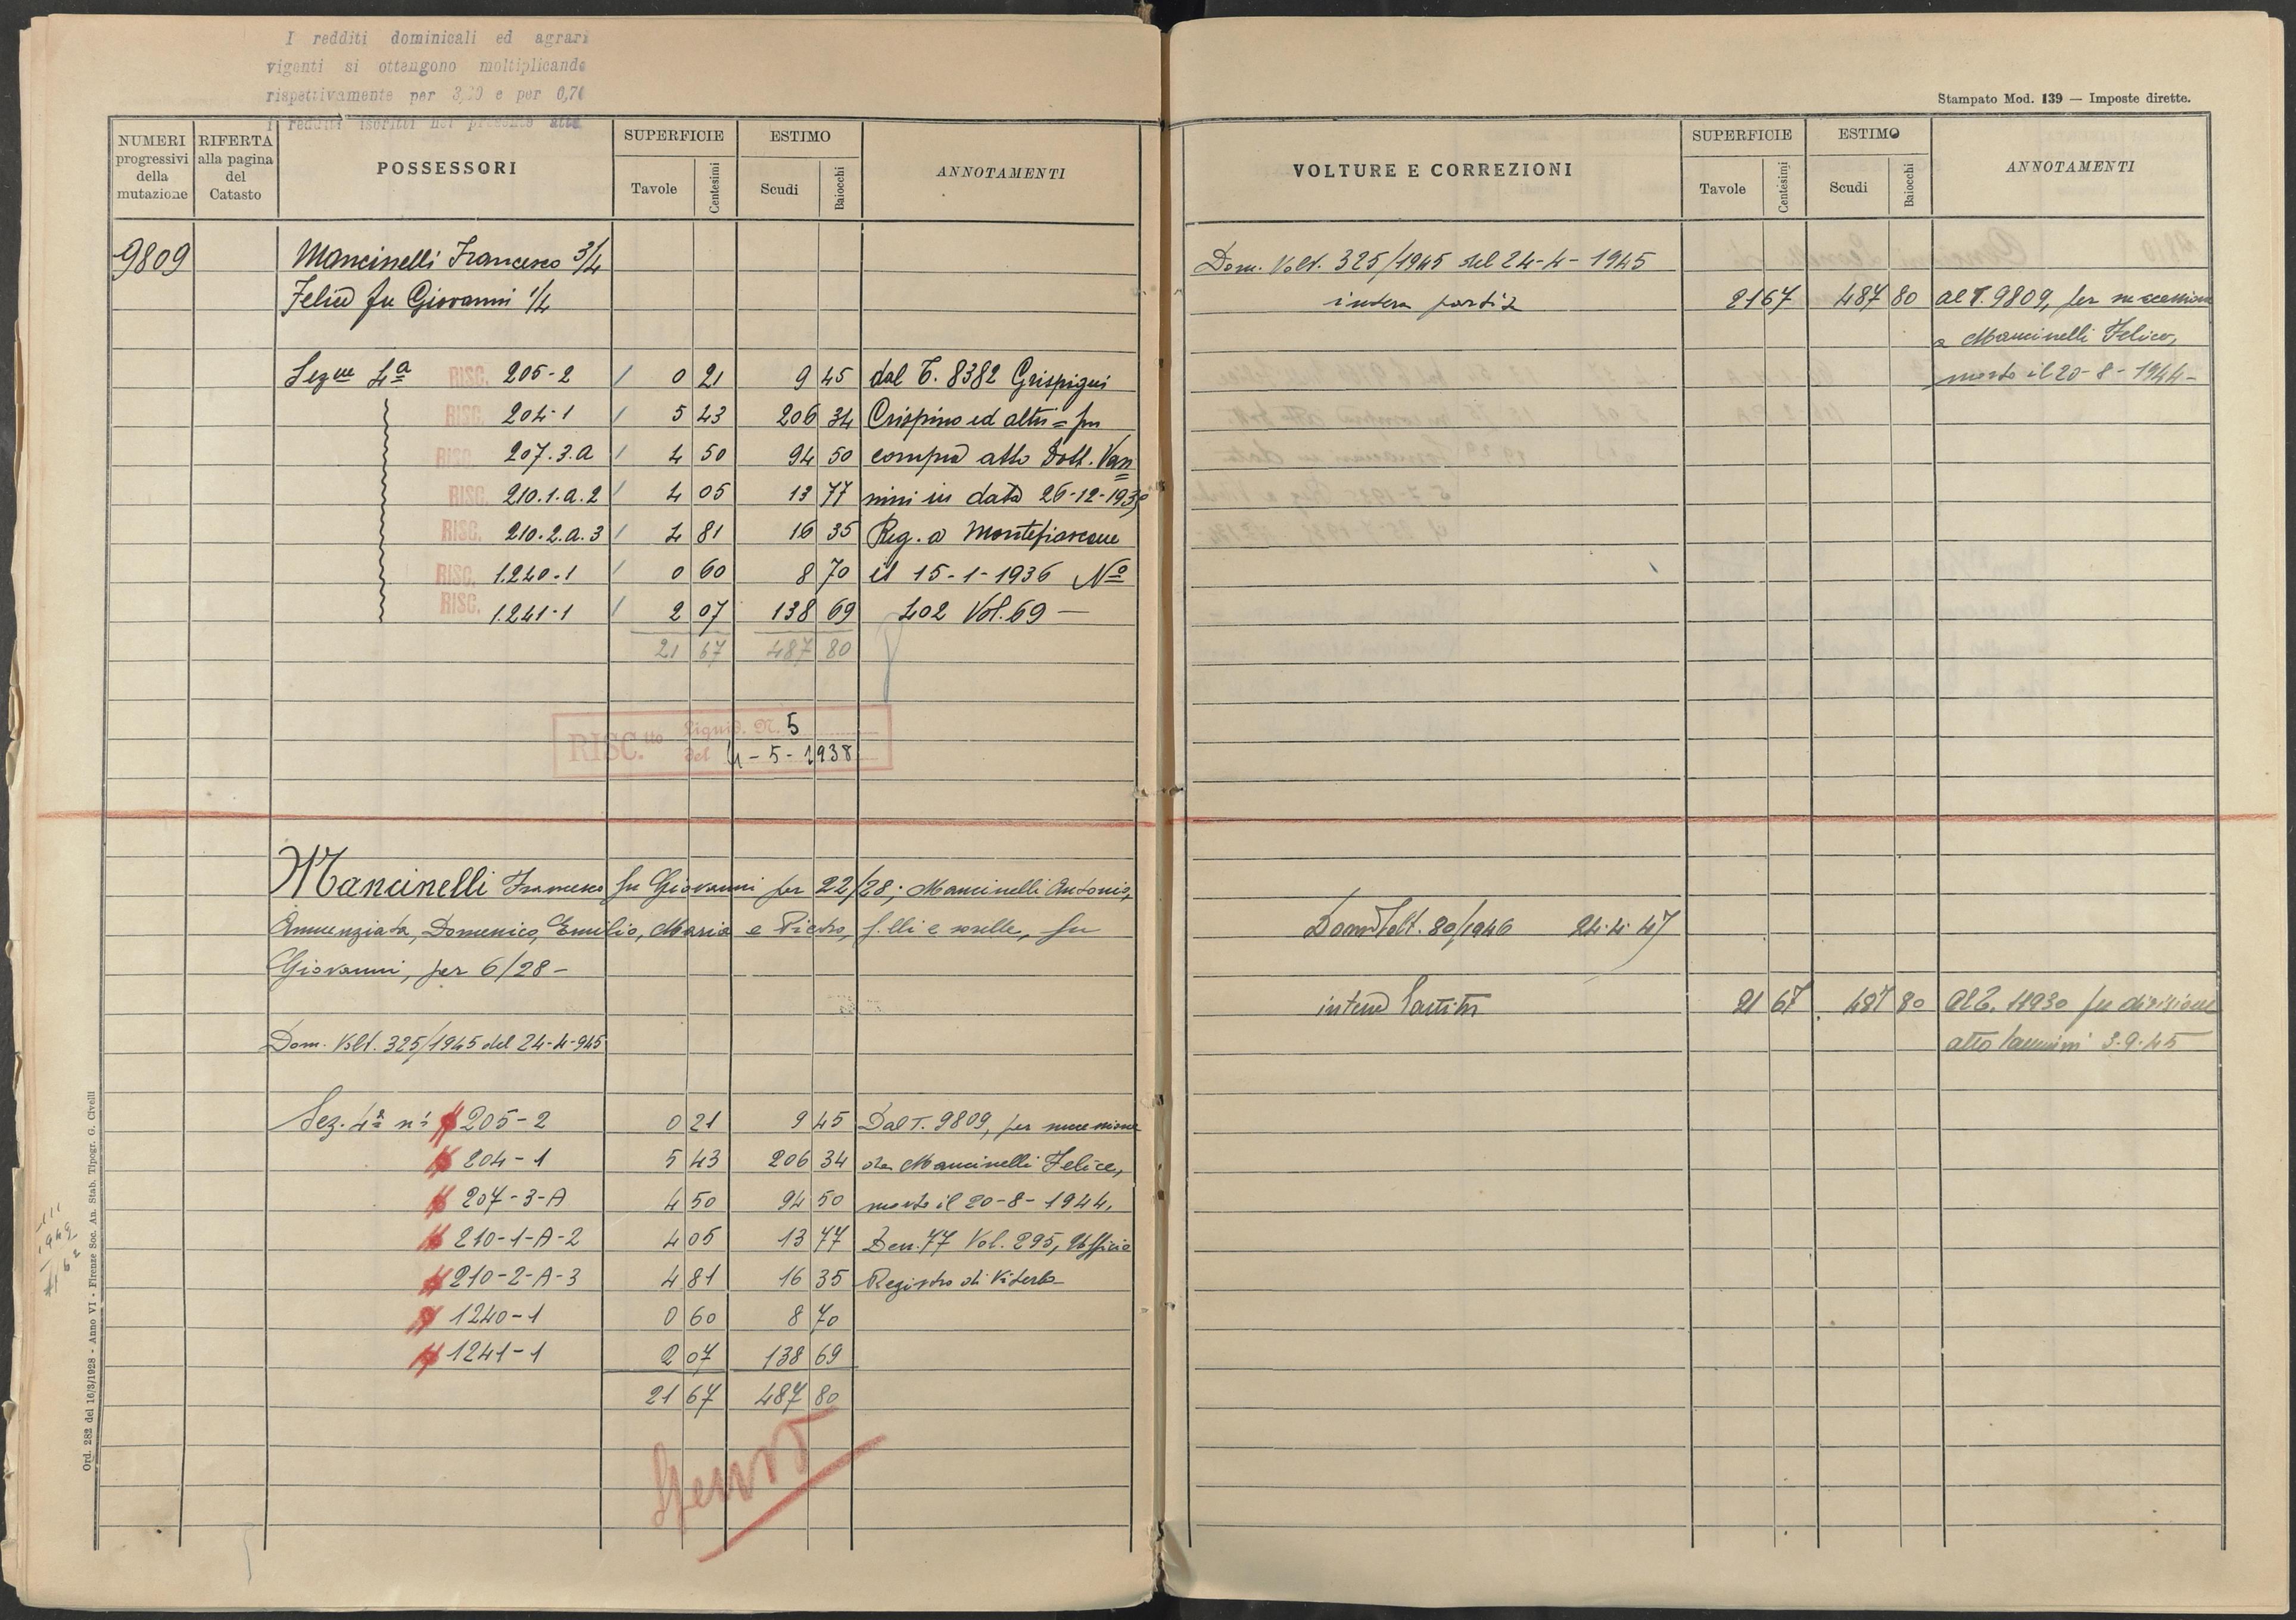 I redditi dominicali ed agrari
vigenti si ottengono moltiplicando
rispettivamente per 3,20 e per 0,70
I redditi iscritti nel presente atto
NUMERI progressivi della mutazione
RIFERTA alla pagina del Catasto
POSSESSORI
SUPERFICIE
Tavole Centesimi
ESTIMO
Scudi Baiocchi
ANNOTAMENTI
9809 Mancinelli Francesco 3/4
Felice fu Giovanni 1/4
Sez.ne 4a RISC. 205-2 0 21 9 45 dal T. 8382 Grispigni
RISC. 204-1 5 43 206 34 Crispino ed altri = per
RISC. 207.3.a 4 50 94 50 compra atto Dott. Van
RISC. 210.1.a.2 4 05 13 77 nini in data 26-12-1935
RISC. 210.2.a.3 4 81 16 35 Reg. a Montefiascone
RISC. 1240-1 0 60 8 70 il 15-1-1936 No
RISC. 1241-1 2 07 138 69 402 Vol. 69 —
21 67 487 80
RISC.tto Liquid. N. 5
del 4-5-1938
Mancinelli Francesco fu Giovanni per 22/28; Mancinelli Antonio,
Annunziata, Domenico, Emilio, Maria e Pietro, f.lli e sorelle, fu
Giovanni, per 6/28 -
Dom. Volt. 325/1945 del 24-4-945
Sez. 4a ni 205-2 0 21 9 45 Dal T. 9809, per successione
204-1 5 43 206 34 da Mancinelli Felice,
207-3-A 4 50 94 50 morto il 20-8-1944.
210-1-A-2 4 05 13 77 Den. 77 Vol. 295, Ufficio
210-2-A-3 4 81 16 35 Registro di Viterbo
1240-1 0 60 8 70
1241-1 2 07 138 69
21 67 487 80
Ord. 282 del 16/3/1928 - Anno VI - Firenze Soc. An. Stab. Tipogr. G. Civelli
Stampato Mod. 139 — Imposte dirette.
VOLTURE E CORREZIONI
SUPERFICIE
Tavole Centesimi
ESTIMO
Scudi Baiocchi
ANNOTAMENTI
Dom. Volt. 325/1945 del 24-4-1945
intera partita 21 67 487 80 al T. 9809, per successione
a Mancinelli Felice,
morto il 20-8-1944-
Dom Volt. 80/1946 24.4.47
intera partita 21 67 487 80 Al T. 11930 per divisione
atto Vannini 3-9-45